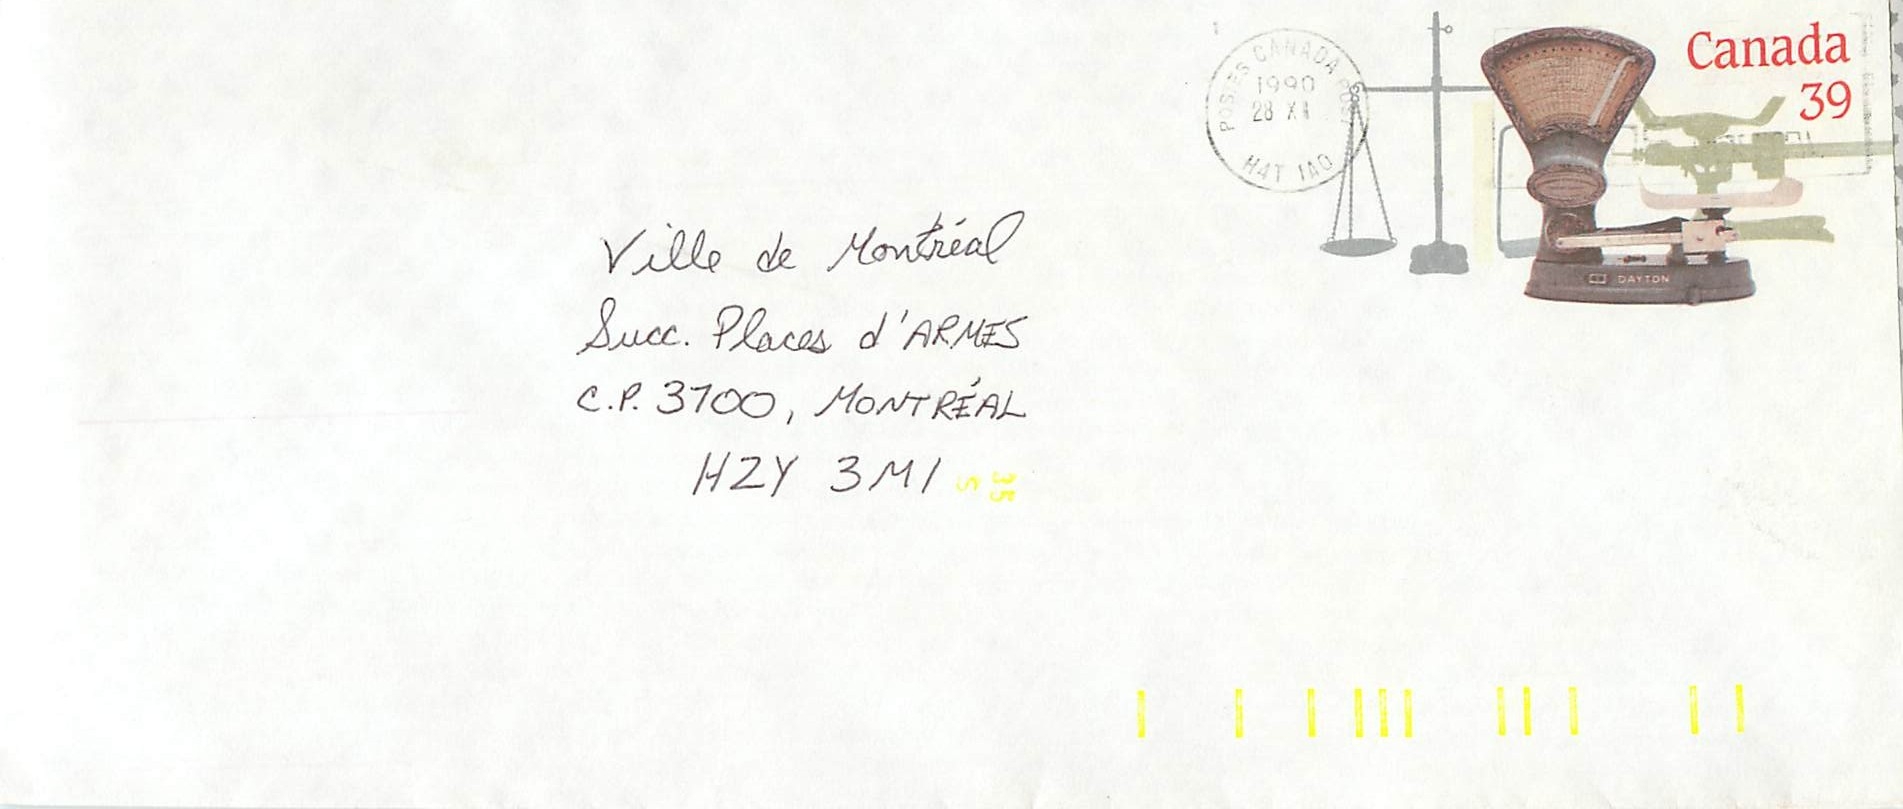 Canada
39
POSTES CANADA POST
1990
28 XII
H4T 1A0
DAYTON
Ville de Montréal
Succ. Places d'ARMES
C.P. 3700, MONTRÉAL
H2Y 3M1
35
S